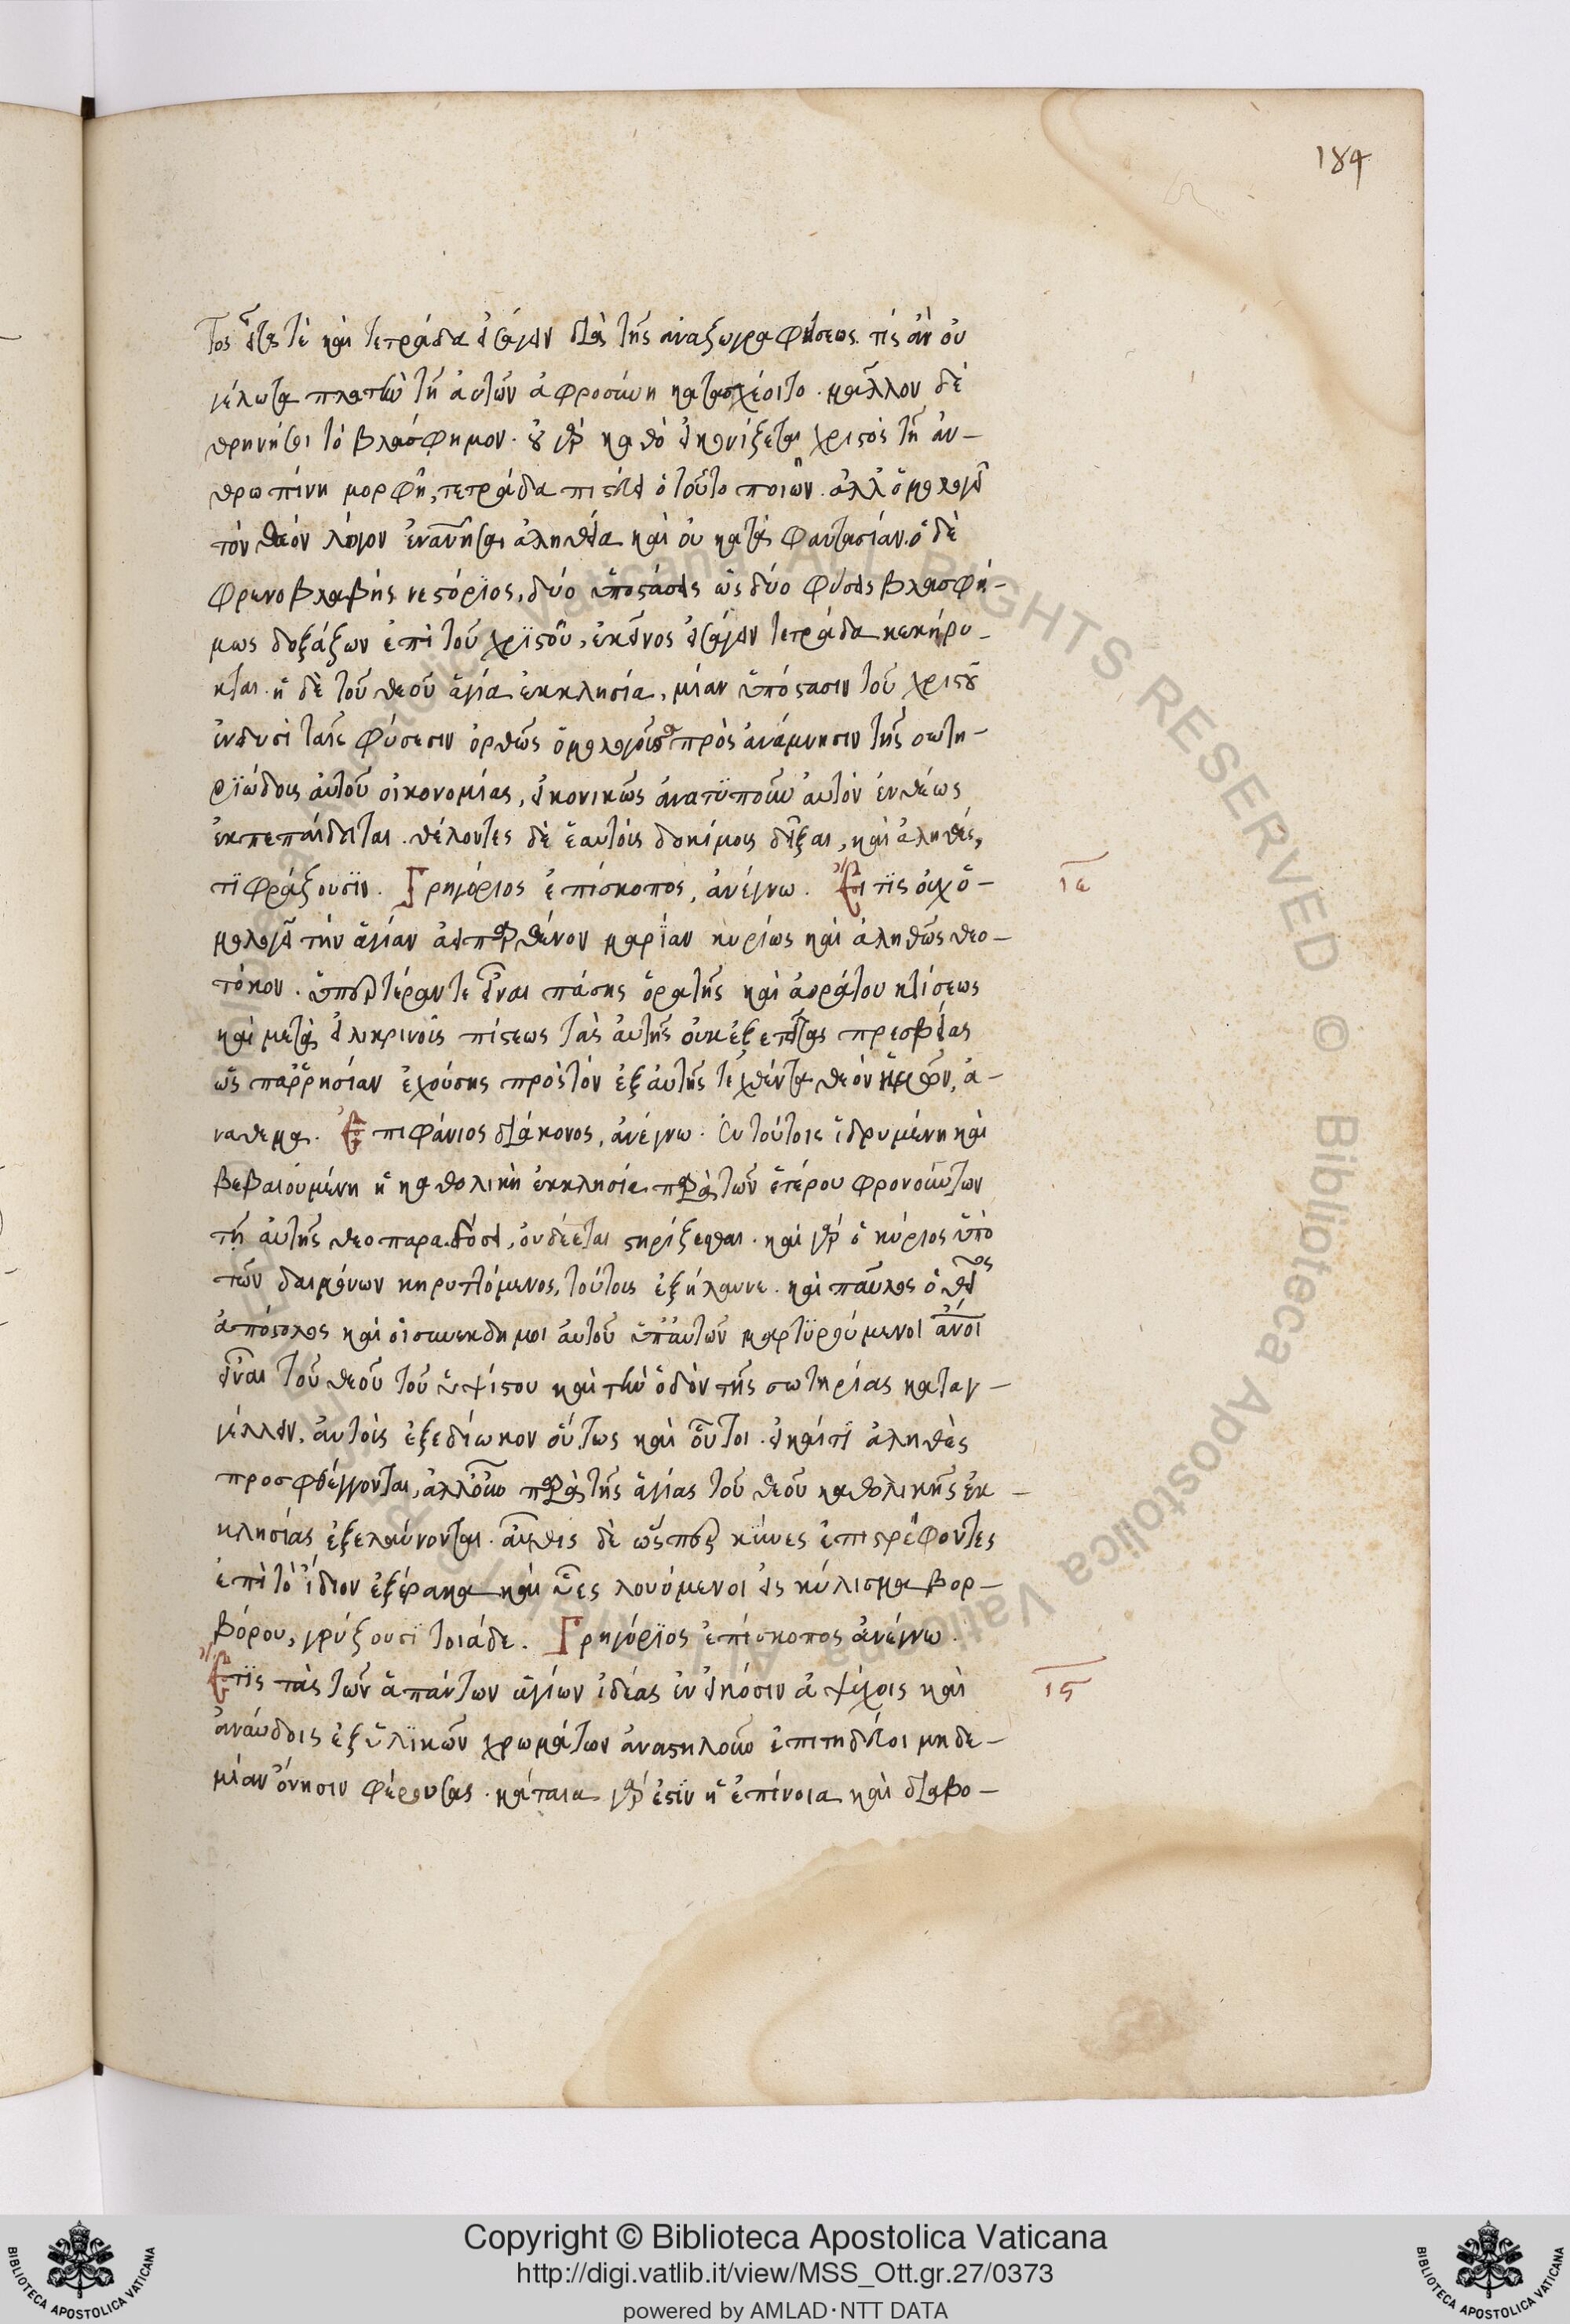 184
τος εἶται τὲ καὶ τετράδα εἰσάγειν διὰ τῆς ἀναζωγραφήσεως. τίς ἂν οὐ
γέλωτα πλατὺν τῇ αὐτῶν ἀφροσύνῃ καταχέοιτο. μᾶλλον δὲ
θρηνήσει τὸ βλάσφημον. οὐ γὰρ καθὸ εἰκονίζεται χριστὸς τῇ ἀν-
θρωπίνῃ μορφῇ, τετράδα πιστοῖ ὁ τοῦτο ποιῶν. ἀλλ' ὁμολογεῖ
τὸν θεὸν λόγον ἐνανθρωπῆσαι ἀληθείᾳ καὶ οὐ κατὰ φαντασίαν. ὁ δὲ
φρενοβλαβὴς νεστόριος, δύο ὑποστάσεις ὡς δύο φύσεις βλασφή-
μως δοξάζων ἐπὶ τοῦ χριστοῦ, ἐκεῖνος εἰσάγειν τετράδα κεκήρυ-
κται. ἡ δὲ τοῦ θεοῦ ἁγία ἐκκλησία, μίαν ὑπόστασιν τοῦ χριστοῦ
ἐν δυσὶ ταῖς φύσεσιν ὀρθῶς ὁμολογοῦσα πρὸς ἀνάμνησιν τῆς σωτη-
ριώδους αὐτοῦ οἰκονομίας, εἰκονικῶς ἀνατυποῦν αὐτὸν ἐνθέως
ἐκπεπαίδευται. θέλοντες δὲ ἑαυτοὺς δοκίμους δεῖξαι, καὶ ἀληθεῖς,
τί φράζουσιν. Γρηγόριος ἐπίσκοπος, ἀνέγνω. Εἴ τις οὐχ ὁ-
ιε
μολογεῖ τὴν ἁγίαν ἀειπάρθενον μαρίαν κυρίως καὶ ἀληθῶς θεο-
τόκον. ὑπερτέραν τε εἶναι πάσης ὁρατῆς καὶ ἀοράτου κτίσεως
καὶ μετὰ εἰλικρινοῦς πίστεως τὰς αὐτῆς οὐκ ἐξαιτεῖται πρεσβείας
ὡς παρρησίαν ἐχούσης πρὸς τὸν ἐξ αὐτῆς τεχθέντα θεὸν ἡμῶν, ἀ-
νάθεμα. Ἐπιφάνιος διάκονος, ἀνέγνω. Ἐν τούτοις ἱδρυμένη καὶ
βεβαιουμένη ἡ καθολικὴ ἐκκλησία παρὰ τῶν ἑτέρου φρονούντων
τῇ αὐτῆς θεοπαραδόσει, οὐ δέεται στηρίζεσθαι. καὶ γὰρ ὁ κύριος ὑπὸ
τῶν δαιμόνων κηρυττόμενος, τούτους ἐξήλαυνε. καὶ παῦλος ὁ θεῖος
ἀπόστολος καὶ οἱ συνέκδημοι αὐτοῦ ὑπ' αὐτῶν μαρτυρούμενοι ἄνοι
εἶναι τοῦ θεοῦ τοῦ ὑψίστου καὶ τὴν ὁδὸν τῆς σωτηρίας καταγ-
γέλλειν, αὐτοὺς ἐξεδίωκον οὕτως καὶ οὗτοι. εἰ καί τι ἀληθὲς
προσφθέγγονται, ἀλλ' οὖν παρὰ τῆς ἁγίας τοῦ θεοῦ καθολικῆς ἐκ-
κλησίας ἐξελαύνονται. αὖθις δὲ ὥσπερ κύνες ἐπιστρέφοντες
ἐπὶ τὸ ἴδιον ἐξέραμα καὶ ὕες λουόμενοι εἰς κύλισμα βορ-
βόρου, γρύζουσι τοιάδε. Γρηγόριος ἐπίσκοπος ἀνέγνω.
Εἴ τις τὰς τῶν ἁπάντων ἁγίων ἰδέας ἐν εἰκόσιν ἀψύχοις καὶ
ις
ἀναύδοις ἐξ ὑλικῶν χρωμάτων ἀναστηλοῦν ἐπιτηδεύοι μηδε-
μίαν ὄνησιν φερούσας. ματαία γάρ ἐστιν ἡ ἐπίνοια καὶ διαβο-
Copyright © Biblioteca Apostolica Vaticana
http://digi.vatlib.it/view/MSS_Ott.gr.27/0373
powered by AMLAD·NTT DATA